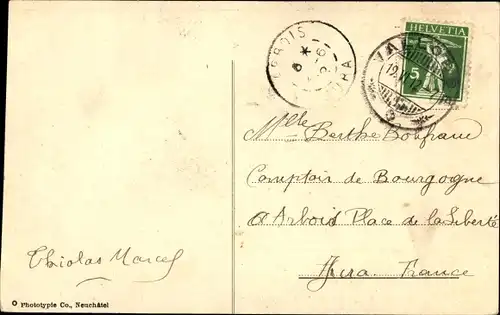 HELVETIA
5
ARBOIS
JURA
Mlle Berthe Bonfrane
Comptoir de Bourgogne
à Arbois Place de la Liberté
Jura. France
Thiolas Marcel
Phototypie Co., Neuchâtel